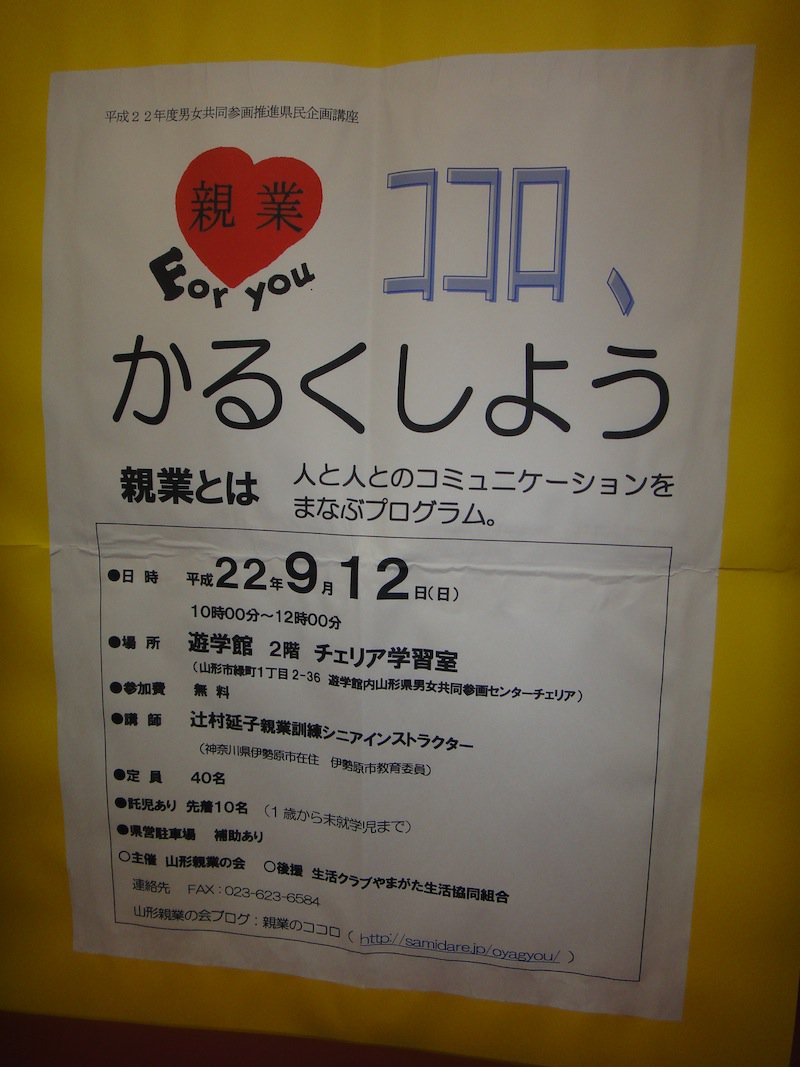 平成22年度男女共同参画推進県民企画講座
親業
For you
ココロ、
かるくしよう
親業とは 人と人とのコミュニケーションを
まなぶプログラム。
●日時 平成22年9月12日(日)
10時00分~12時00分
●場所 遊学館 2階 チェリア学習室
(山形市緑町1丁目2-36 遊学館内山形県男女共同参画センターチェリア)
●参加費 無料
●講師 辻村延子親業訓練シニアインストラクター
(神奈川県伊勢原市在住 伊勢原市教育委員)
●定員 40名
●託児あり 先着10名 (1歳から未就学児まで)
●県営駐車場 補助あり
○主催 山形親業の会 ○後援 生活クラブやまがた生活協同組合
連絡先 FAX:023-623-6584
山形親業の会ブログ:親業のココロ( http://samidare.jp/oyagyou/ )